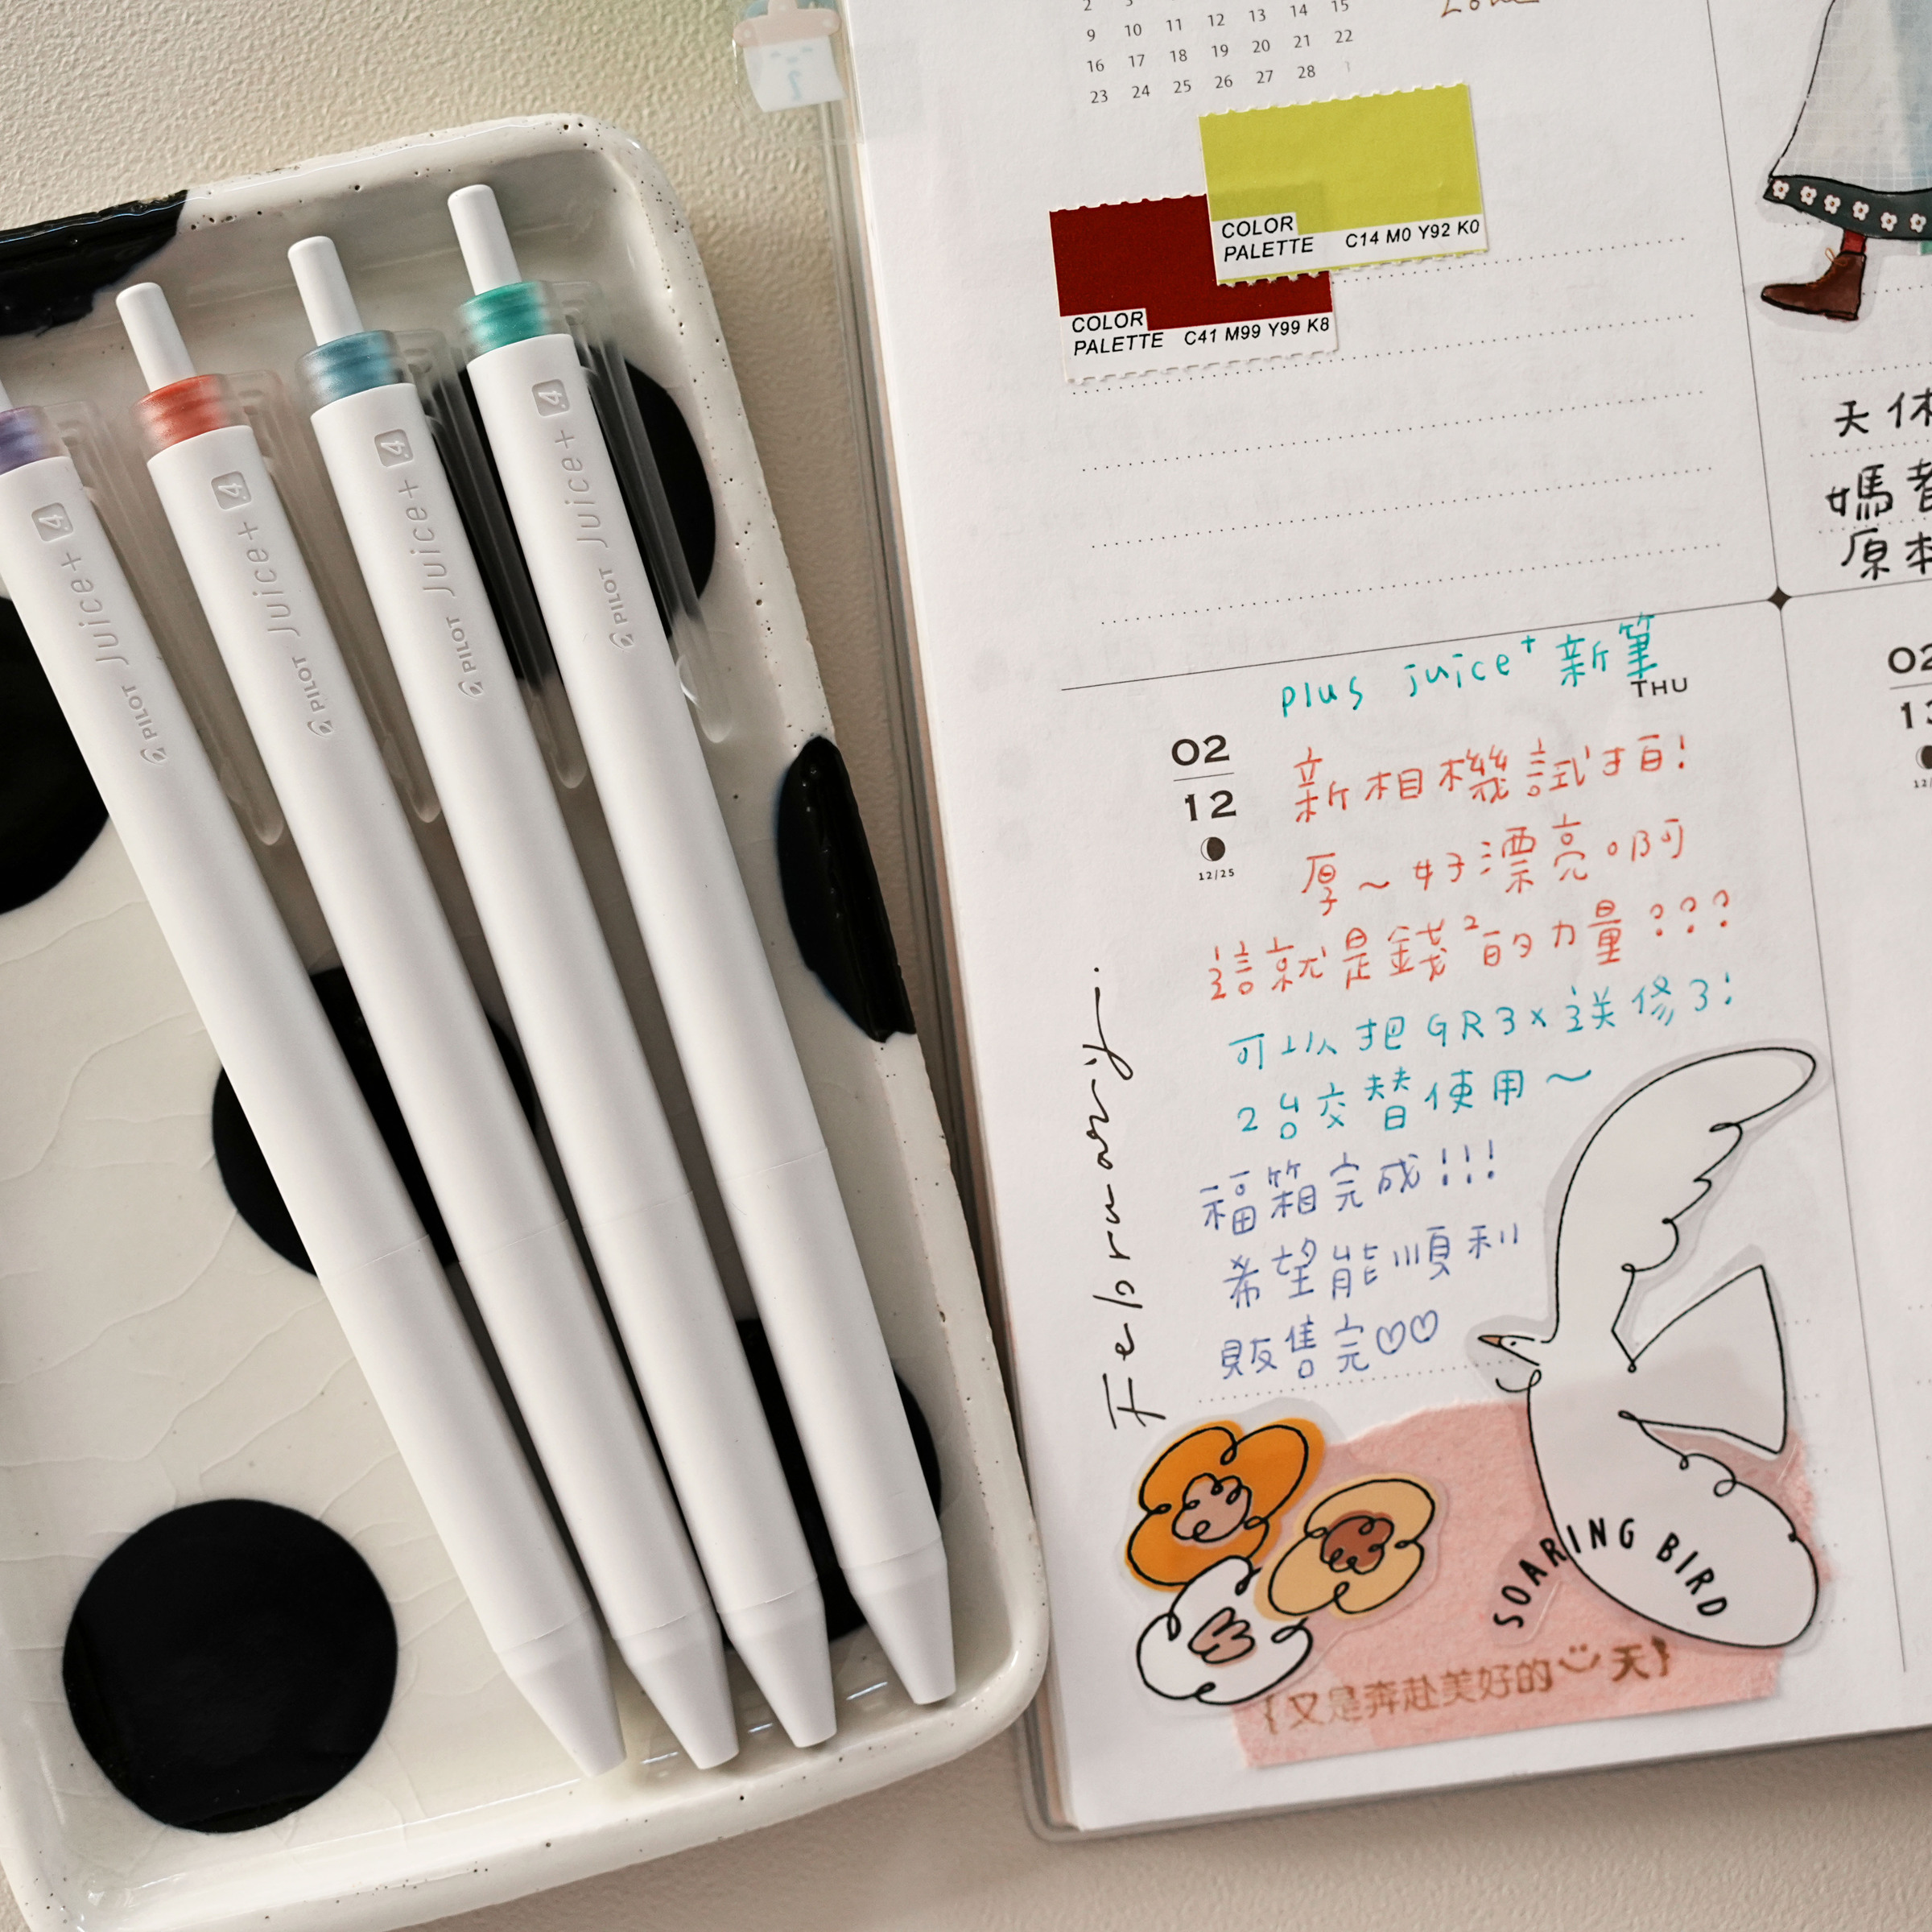 Juice+ 4
PILOT
Juice+ 4
PILOT
Juice+ 4
PILOT
Juice+ 4
PILOT
9 10 11 12 13 14 15
16 17 18 19 20 21 22
23 24 25 26 27 28
COLOR
PALETTE C14 M0 Y92 K0
COLOR
PALETTE C41 M99 Y99 K8
天休
媽
原本
plus juice+ 新筆
THU
02
12
12/25
新相機試拍!
厚~好漂亮啊
這就是錢²的力量???
可以把GR3x送修了!
2台交替使用~
福箱完成!!!
希望能順利
販售完♡♡
February.
SOARING BIRD
{又是奔赴美好的一天}
02